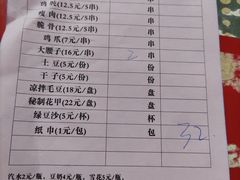 鸡 (12.5元/5串) 串
瘦肉(12.5元/5串) 串
脆骨(12.5元/5串) 串
鸡爪(7元/串) 串
大腰子(16元/串) 2 串
土豆(5元/份) 份
干子(5元/份) 份
凉拌毛豆(18元/盘) 盘
秘制花甲(22元/盘) 盘
绿豆沙(5元/杯) 杯
纸巾(1元/包) 包
32
汽水2元/瓶、豆奶4元/瓶、雪花5元/瓶、